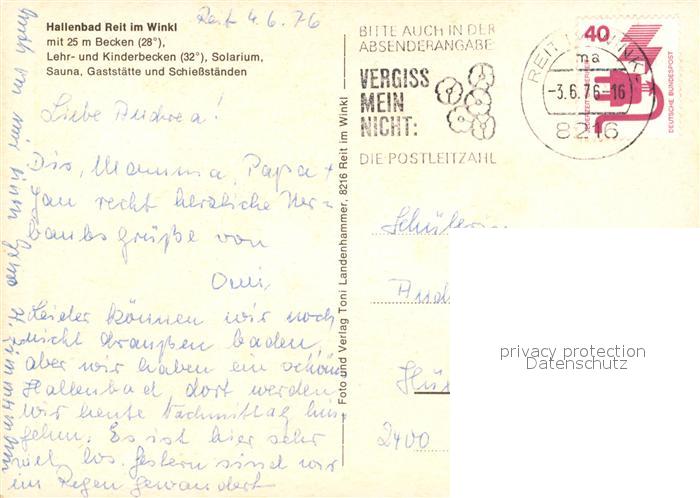 Hallenbad Reit im Winkl
mit 25 m Becken (28°),
Lehr- und Kinderbecken (32°), Solarium,
Sauna, Gaststätte und Schießständen
Reit 4.6.76
Liebe Andrea!
Dir, Mamma, Papa +
Jan recht herzliche Ur=
laubsgrüße von
Omi,
Leider können wir noch
nicht draußen baden,
aber wir haben ein schön
Hallenbad, dort werden
wir heute Nachmittag hin=
gehn. Es ist hier sehr
viel los. Gestern sind wir
im Regen gewandert
Auch von mir einen
Foto und Verlag Toni Landenhammer, 8216 Reit im Winkl
BITTE AUCH IN DER
ABSENDERANGABE
VERGISS
MEIN
NICHT:
DIE POSTLEITZAHL
REIT IM WINKL
ma
-3.6.76-16
8216
40
JEDERZEIT SICHERHEIT
DEUTSCHE BUNDESPOST
Schülerin
And
2400
privacy protection
Datenschutz